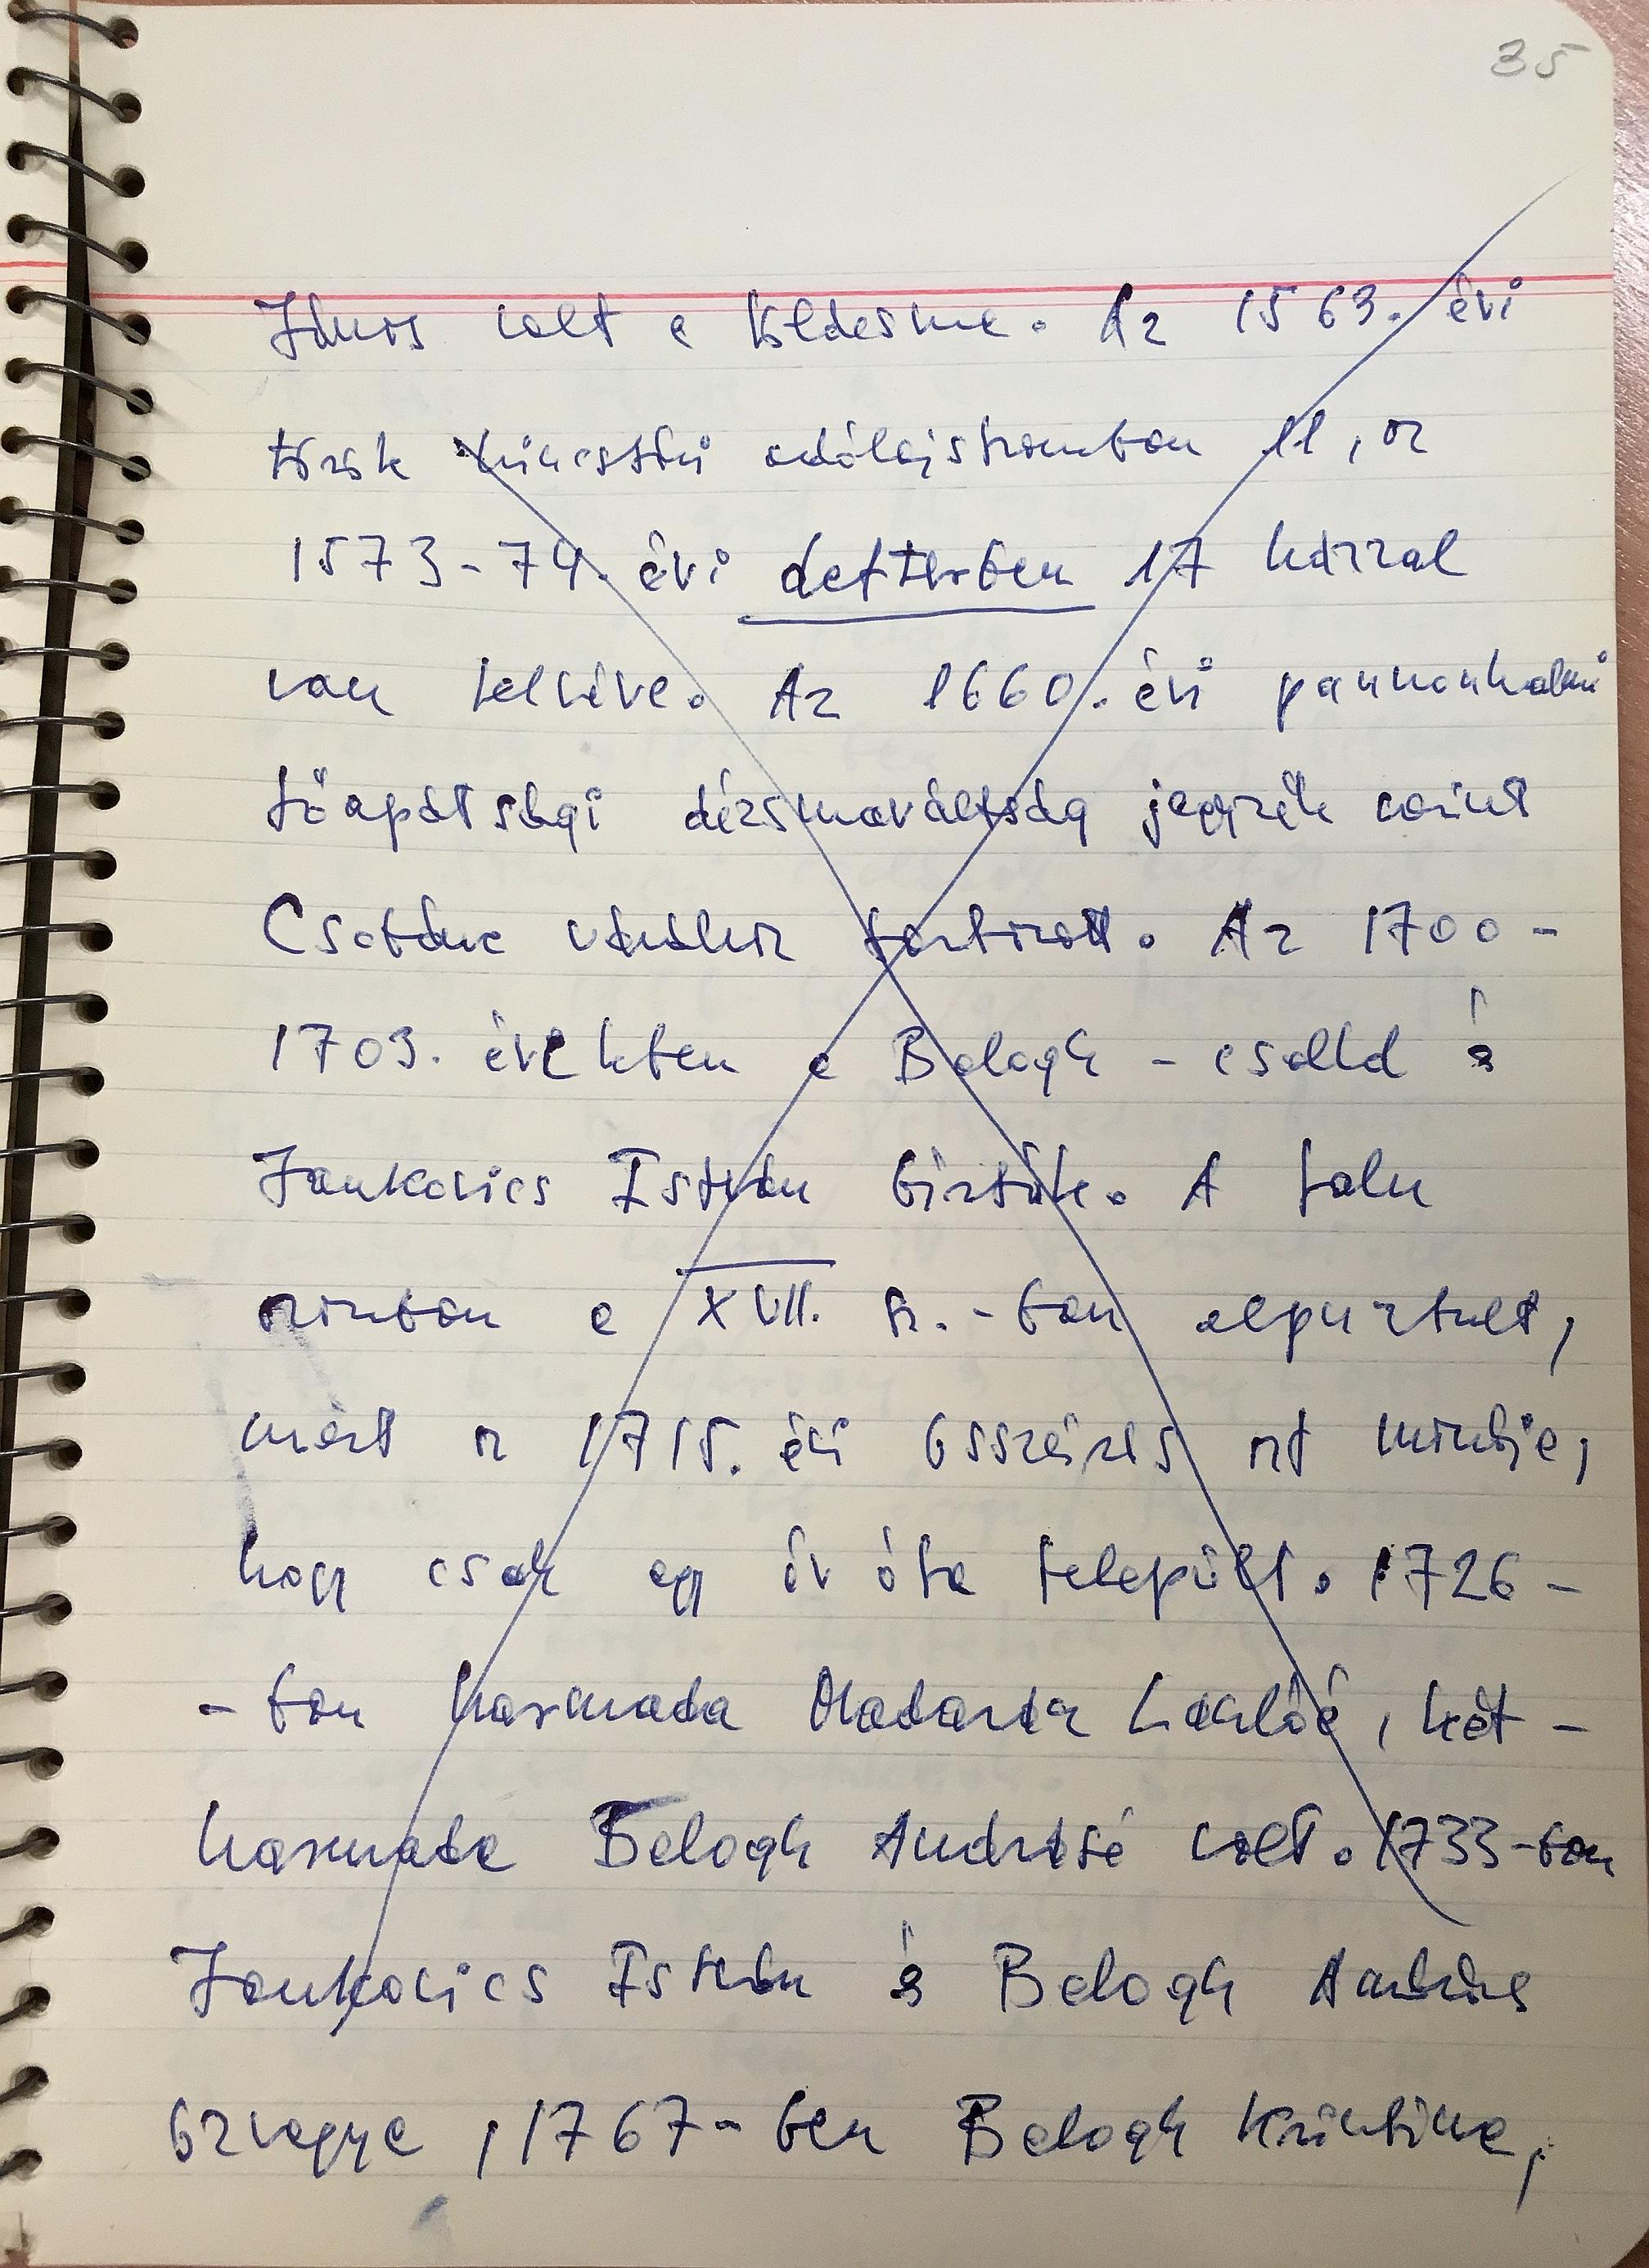 35
János volt a földesura. Az 1563. évi
török kincstári adólajstromban 11, az
1573-74. évi defterben 17 házzal
van felvéve. Az 1660. évi pannonhalmi
főapátsági dézsmaváltság jegyzék szerint
Csobánc várához tartozott. Az 1700-
1703. években a Balogh-család és
Jankovics István birtoka. A falu
azonban a XVII. sz.-ban elpusztult,
mert az 1715. évi összeírás azt mondja,
hogy csak egy év óta települt. 1726-
-ban harmada Madarász Lászlóé, két-
harmada Balogh Andrásé volt. 1733-ban
Jankovics István és Balogh András
özvegye, 1767-ben Balogh Krisztina,